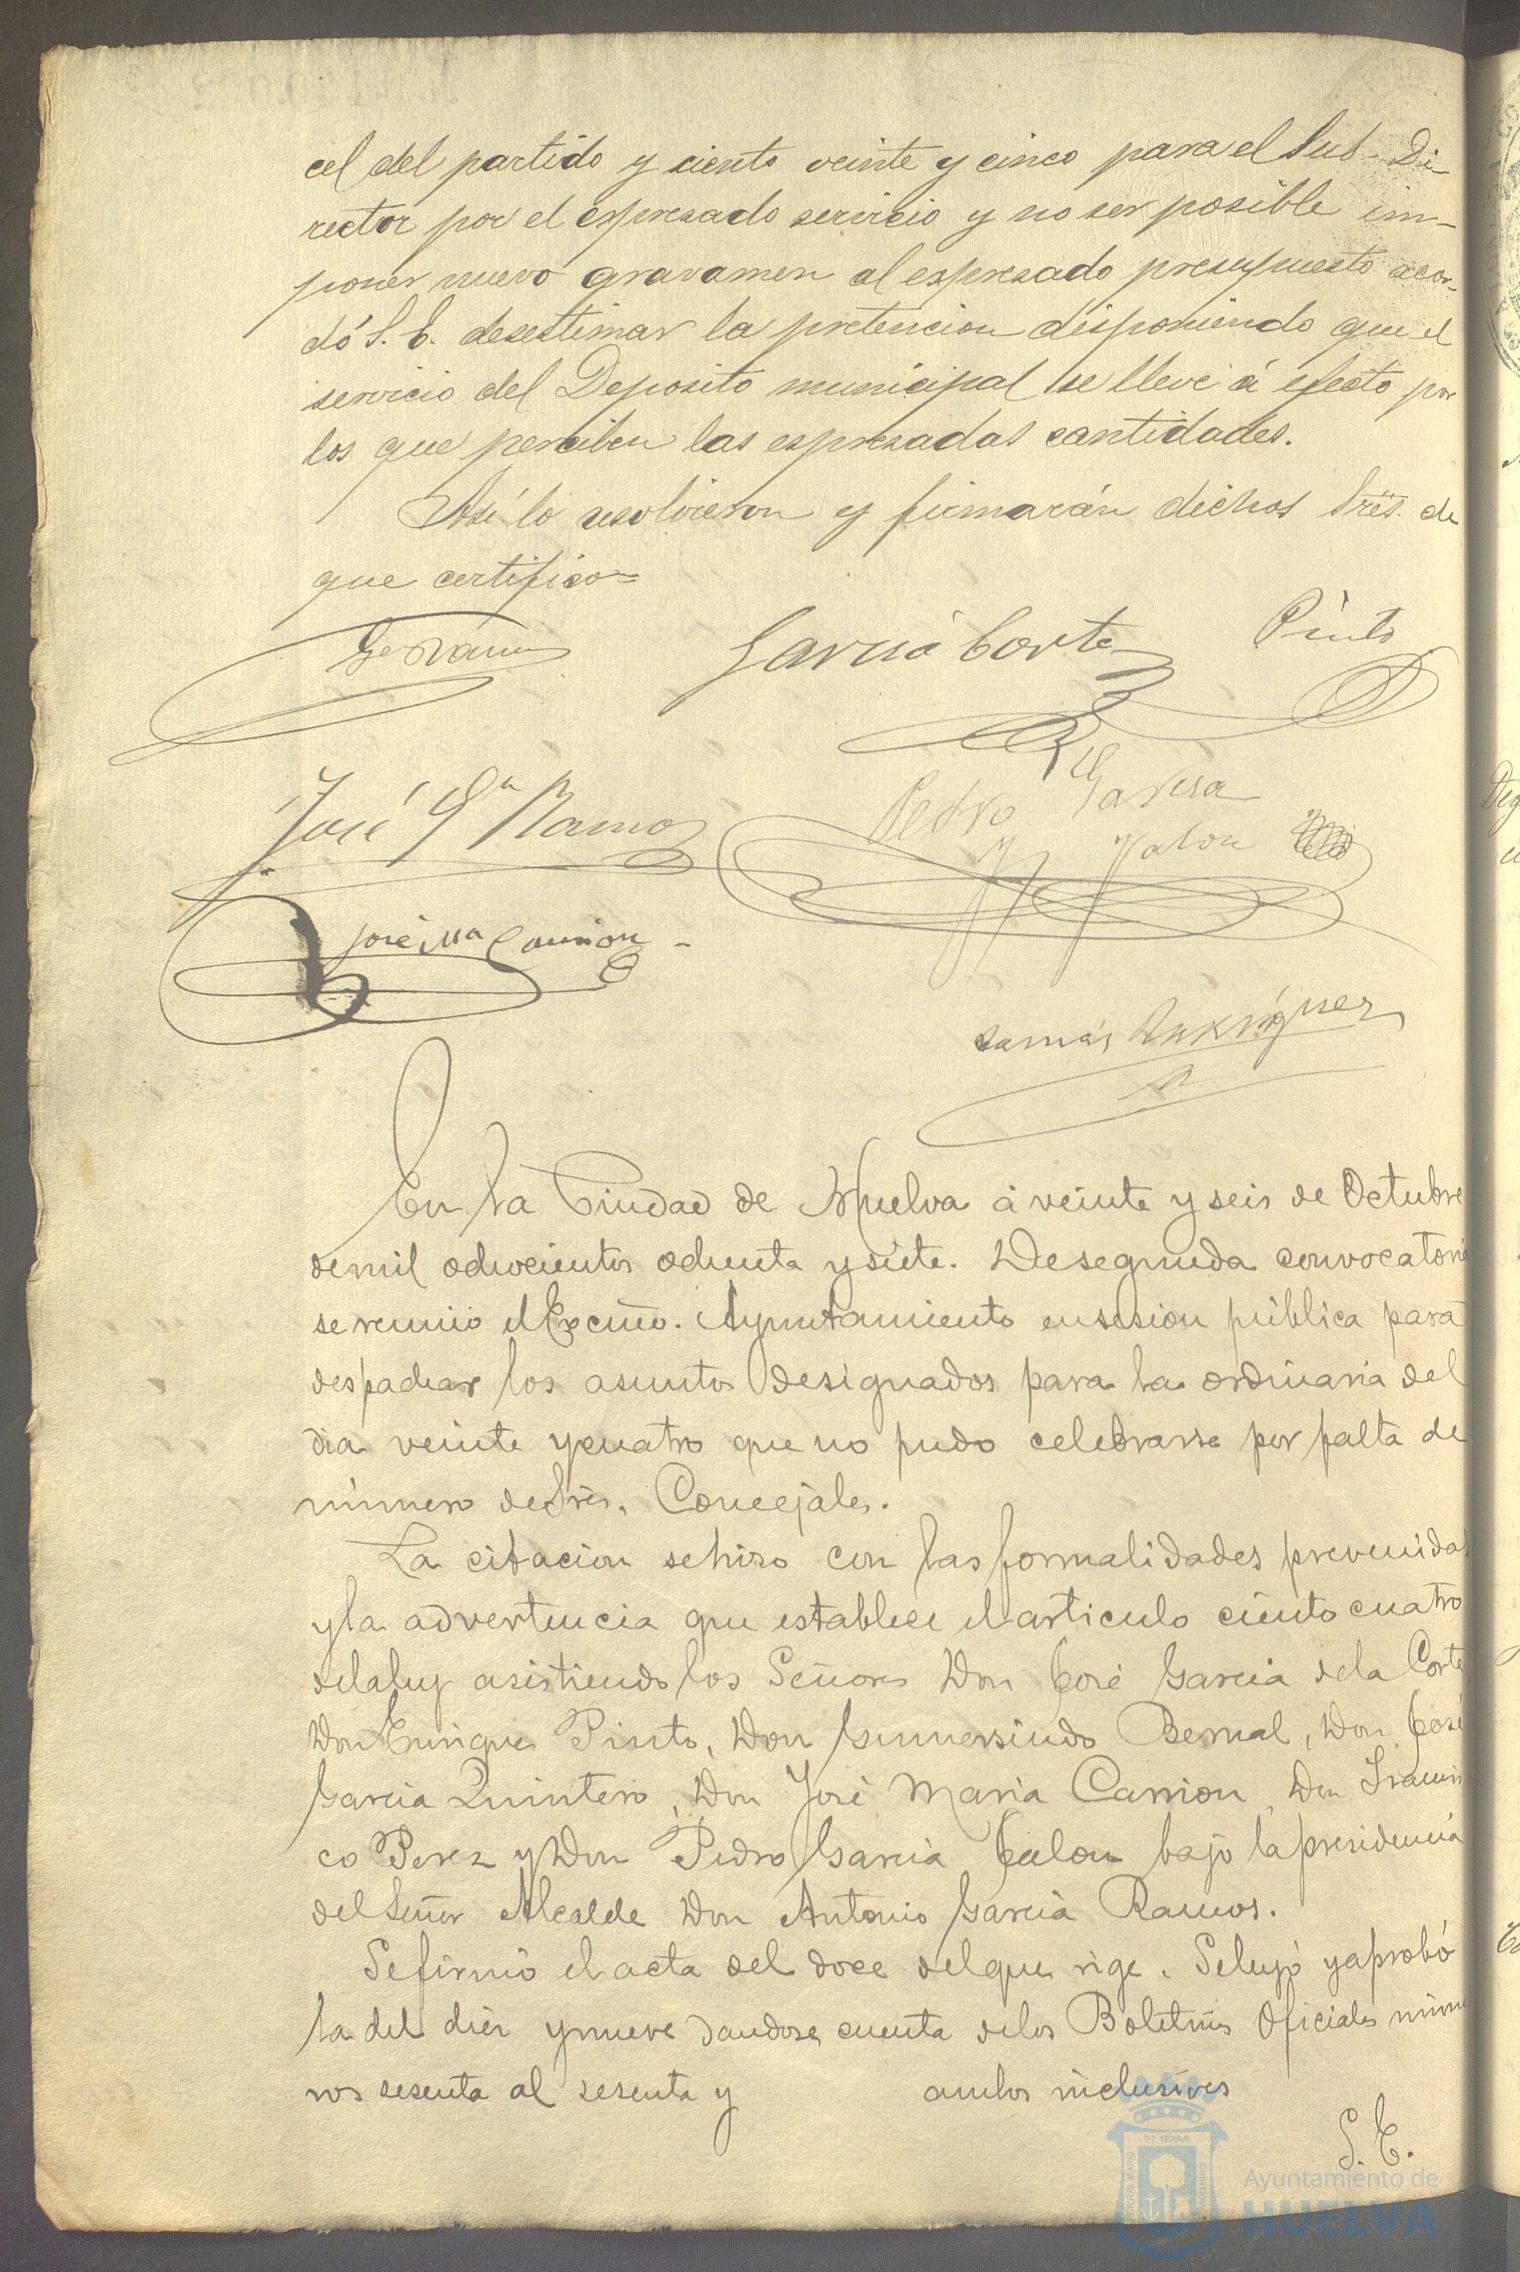 cel del partido y ciento veinte y cinco para el Sub-Di-
rector por el espresado servicio y no ser posible im-
poner nuevo gravamen al espresado presupuesto acor-
dó S. E. desestimar la pretencion disponiendo que el
servicio del Deposito municipal se lleve á efecto por
los que perciben las espresadas cantidades.
Asi lo resolvieron y firmarán dichos Sres. de
que certifico=
García Corte Pinto
José Gª Ramos Pedro Garcia
Jalon
José Mª Carrion
Tomás Rodríguez
En la Ciudad de Huelva á veinte y seis de Octubre
de mil ochocientos ochenta y siete. De segunda convocatoria
se reunió el Excmo. Ayuntamiento en sesion pública para
despachar los asuntos designados para la ordinaria del
dia veinte y cuatro que no pudo celebrarse por falta de
número de Sres. Concejales.
La citacion se hizo con las formalidades prevenidas
y la advertencia que establece el articulo ciento cuatro
de la ley asistiendo los Señores Don José Garcia de la Corte
Don Enrique Pinto, Don Gumersindo Bernal, Don José
Garcia Quintero, Don José Maria Carrion, Don Francis
co Perez y Don Pedro Garcia Jalon bajo la presidencia
del Señor Alcalde Don Antonio Garcia Ramos.
Se firmó el acta del doce del que rige. Se leyó y aprobó
la del diez y nueve dandose cuenta de los Boletines Oficiales núme
ros sesenta al sesenta y ambos inclusives
S. E.
Ayuntamiento de
HUELVA